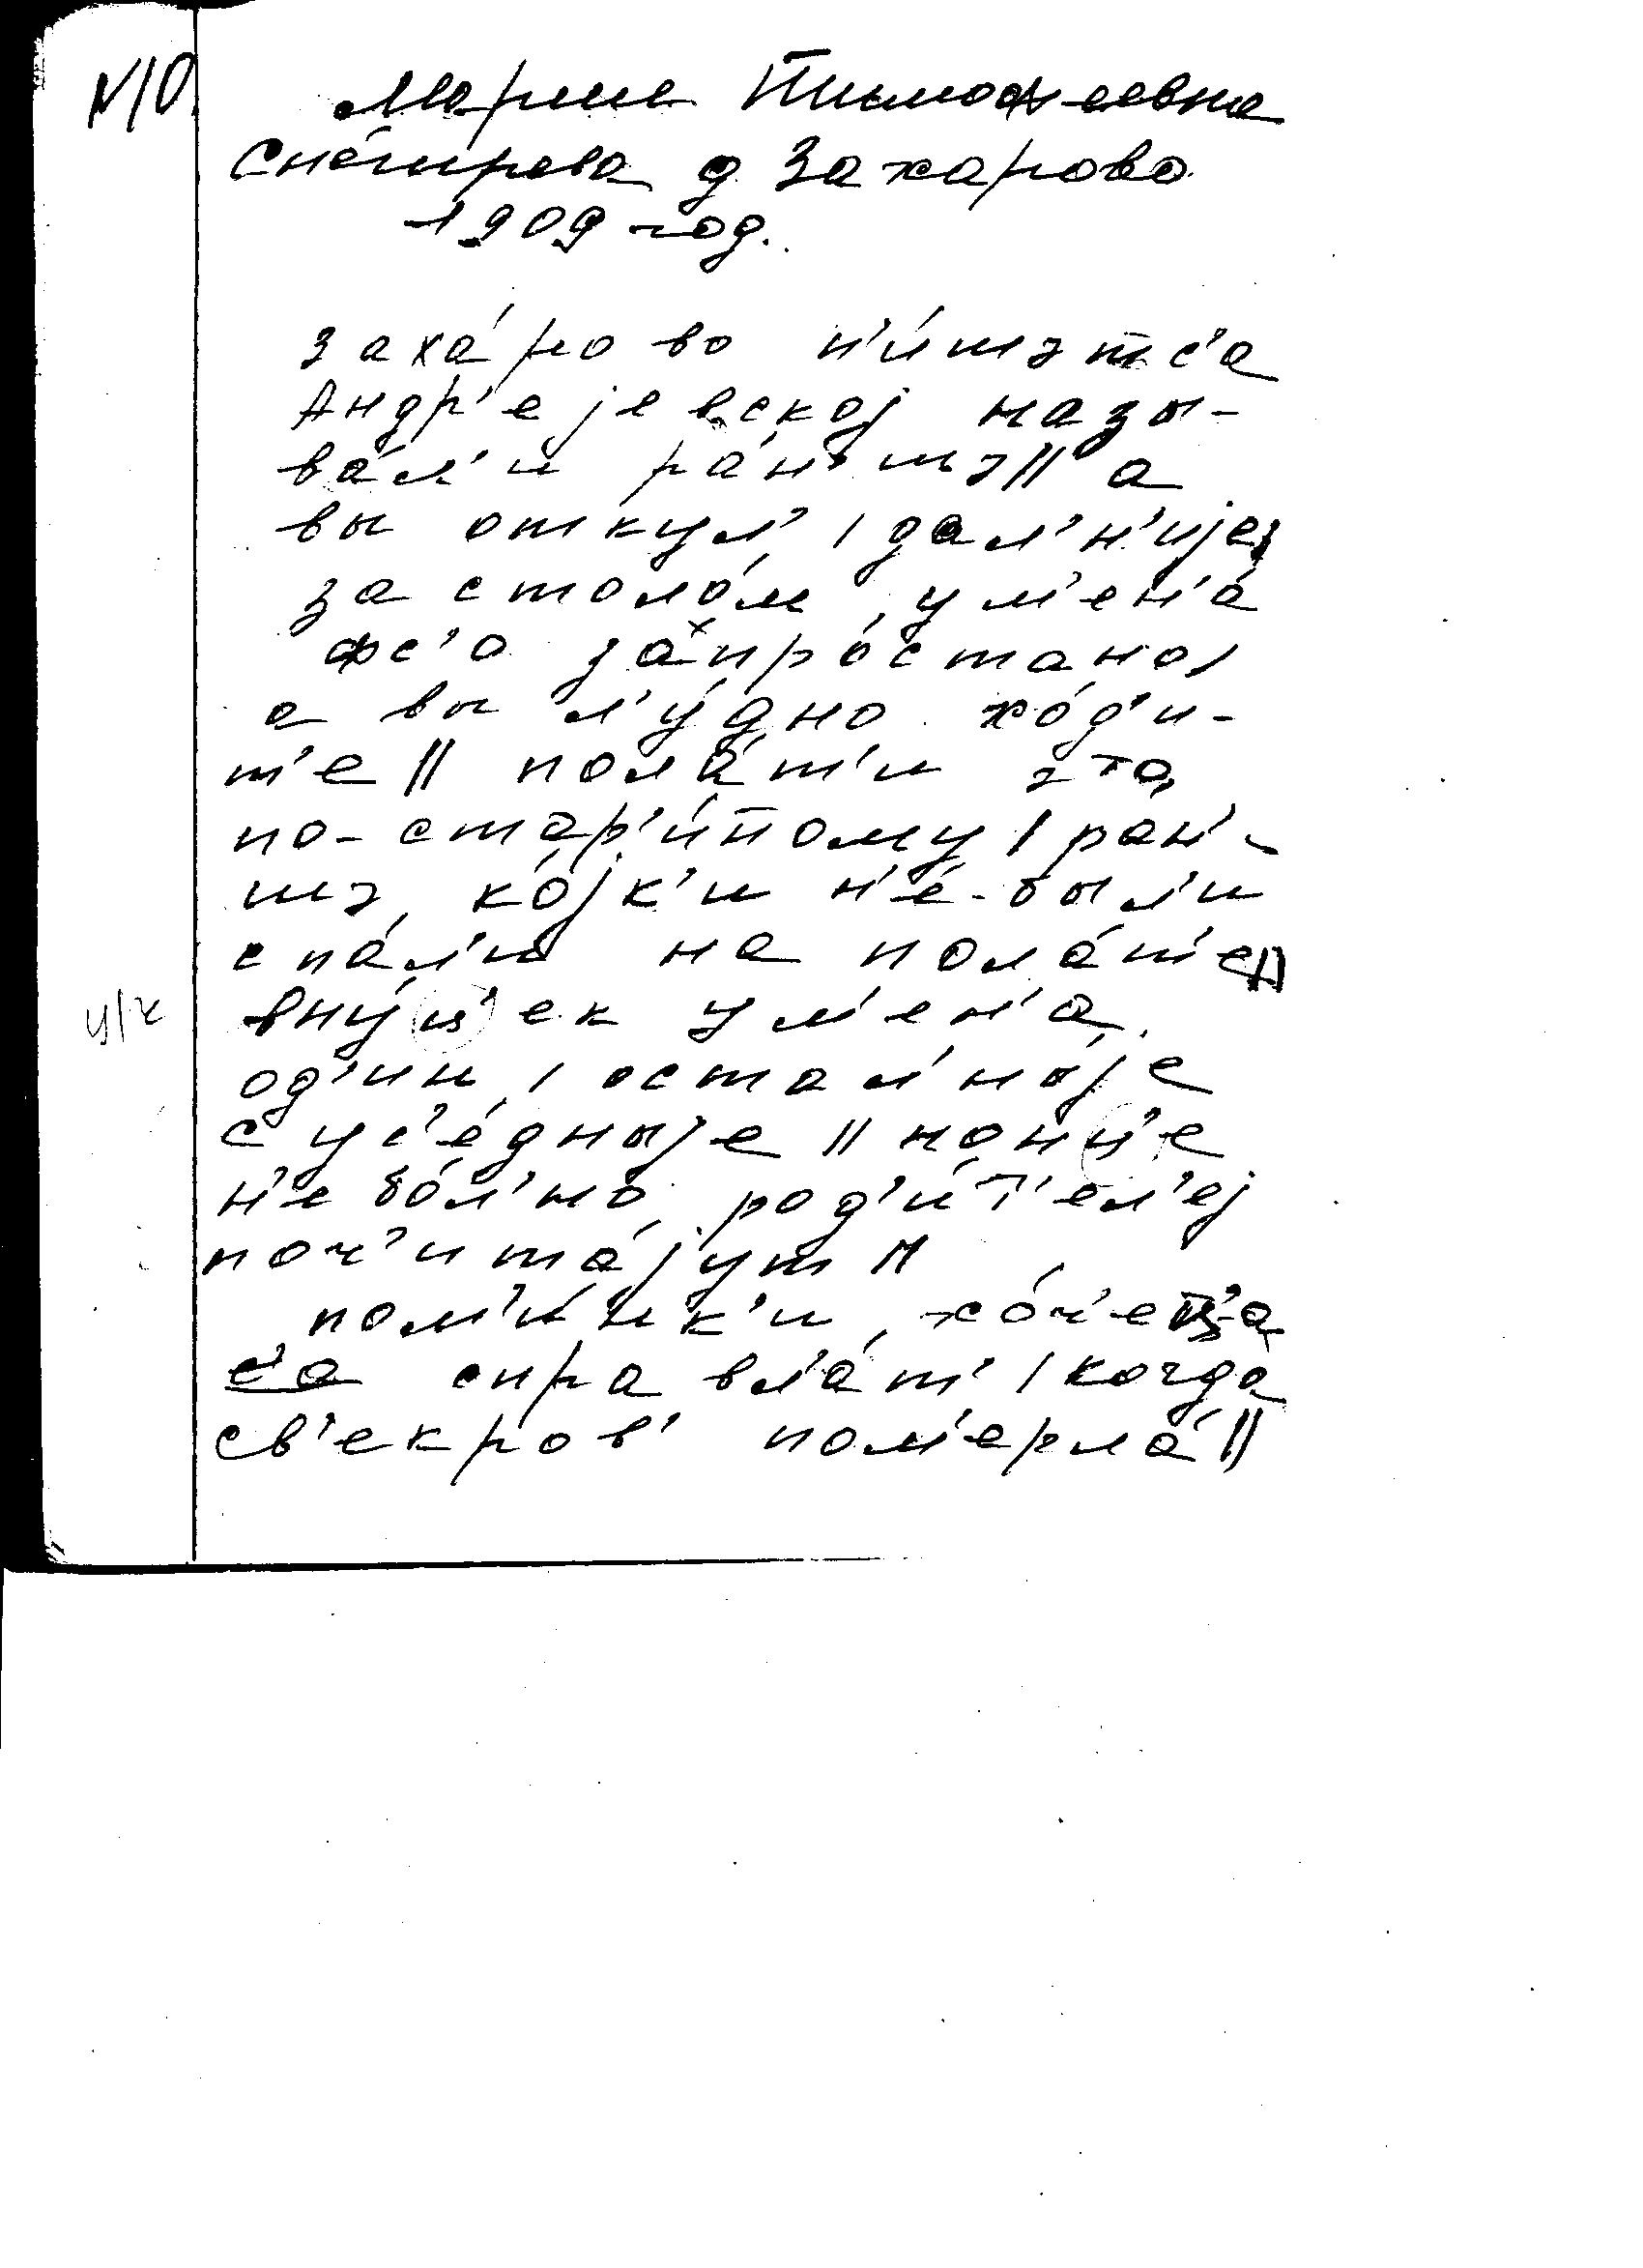 N10.
Мария Тимофеевна
Снегирева д Захарово
1909 год.
заха́рово п'и́шэтс'а
Андр'е јевској назы-
ва́л'и ра́н'шэ || а
вы откул' / дал'н'ије /
за столо́м у м'ен'а́
фс'о запро́стано /
а вы л'у́дно хо́д'и-
т'е || пола́т'и это
по-стар'и́нному / ран'-
шэ ко́јк'и н'е́-были
спа́л'и на пола́т'е ||
ц/ч
вну́ц'ек у м'ен'а
од'ин / остал'ныје
сус'е́дныје || нон'ц'е
н'е бо́л'но род'и́т'ел'еј
поч'ита́јут ||
пом'и́нк'и хо́ч'етца
с'а справл'а́т' / когда
св'екров' пом'ерла́ ||